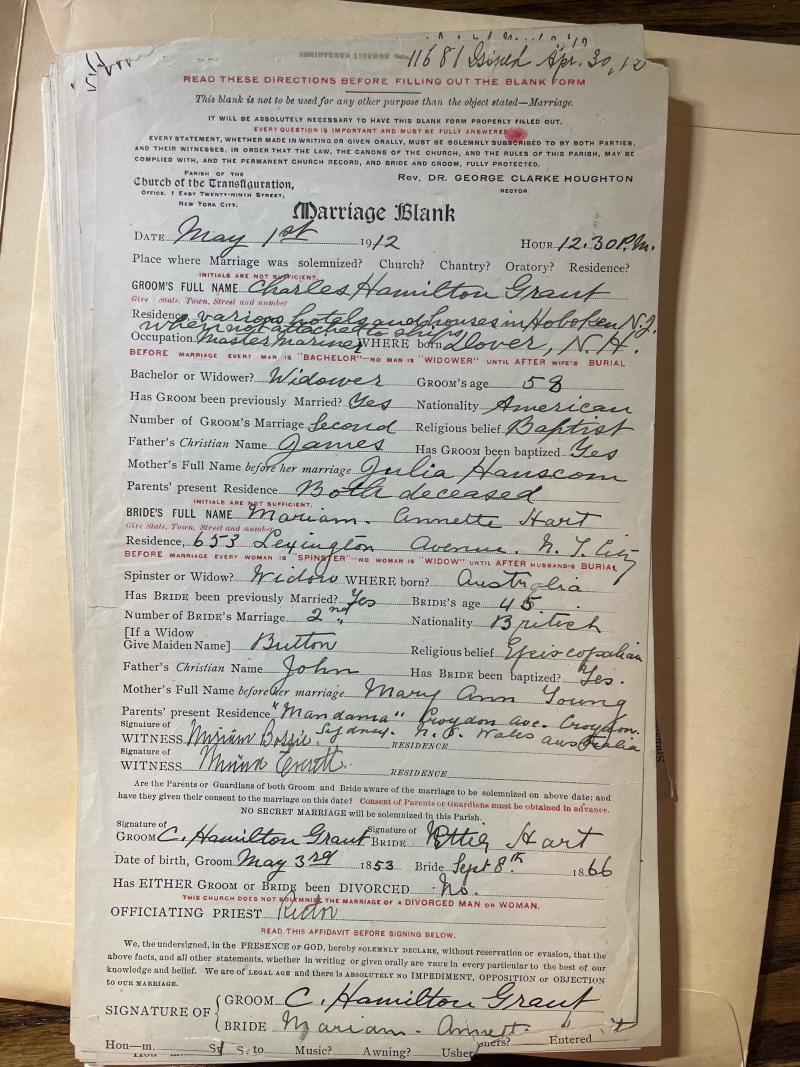 REGISTERED LICENSE
11681 Issued Apr. 30, 12
READ THESE DIRECTIONS BEFORE FILLING OUT THE BLANK FORM
This blank is not to be used for any other purpose than the object stated—Marriage.
IT WILL BE ABSOLUTELY NECESSARY TO HAVE THIS BLANK FORM PROPERLY FILLED OUT.
EVERY QUESTION IS IMPORTANT AND MUST BE FULLY ANSWERED
EVERY STATEMENT, WHETHER MADE IN WRITING OR GIVEN ORALLY, MUST BE SOLEMNLY SUBSCRIBED TO BY BOTH PARTIES,
AND THEIR WITNESSES, IN ORDER THAT THE LAW, THE CANONS OF THE CHURCH, AND THE RULES OF THIS PARISH, MAY BE
COMPLIED WITH, AND THE PERMANENT CHURCH RECORD, AND BRIDE AND GROOM, FULLY PROTECTED.
PARISH OF THE
Church of the Transfiguration,
OFFICE, 1 EAST TWENTY-NINTH STREET,
NEW YORK CITY.
REV. DR. GEORGE CLARKE HOUGHTON
RECTOR.
Marriage Blank
DATE May 1st 1912 HOUR 12.30 P.M.
Place where Marriage was solemnized? Church? Chantry? Oratory? Residence?
INITIALS ARE NOT SUFFICIENT.
GROOM'S FULL NAME Charles Hamilton Grant
Give State, Town, Street and number
Residence, various hotels and houses in Hoboken N.J.
when not attached to ships
Occupation Master Mariner WHERE born Dover, N.H.
BEFORE MARRIAGE EVERY MAN IS "BACHELOR"—NO MAN IS "WIDOWER" UNTIL AFTER WIFE'S BURIAL
Bachelor or Widower? Widower GROOM'S age 58
Has GROOM been previously Married? Yes Nationality American
Number of GROOM'S Marriage Second Religious belief Baptist
Father's Christian Name James Has GROOM been baptized Yes
Mother's Full Name before her marriage Julia Hanscom
Parents' present Residence Both deceased
INITIALS ARE NOT SUFFICIENT.
BRIDE'S FULL NAME Mariam. Annette Hart
Give State, Town, Street and number
Residence, 653 Lexington Avenue. N.Y. City
BEFORE MARRIAGE EVERY WOMAN IS "SPINSTER"—NO WOMAN IS "WIDOW" UNTIL AFTER HUSBAND'S BURIAL
Spinster or Widow? Widow WHERE born? Australia
Has BRIDE been previously Married? Yes BRIDE'S age 45
Number of BRIDE'S Marriage 2nd Nationality British
[If a Widow
Give Maiden Name] Button Religious belief Episcopalian
Father's Christian Name John Has BRIDE been baptized? Yes.
Mother's Full Name before her marriage Mary Ann Young
Parents' present Residence "Mandama" Croydon ave. Croydon.
Sydney. N.S. Wales Australia
Signature of
WITNESS Miriam RESIDENCE
Signature of
WITNESS RESIDENCE
Are the Parents or Guardians of both Groom and Bride aware of the marriage to be solemnized on above date; and
have they given their consent to the marriage on this date? Consent of Parents or Guardians must be obtained in advance.
NO SECRET MARRIAGE will be solemnized in this Parish.
Signature of GROOM C. Hamilton Grant Signature of BRIDE Hart
Date of birth, Groom May 3rd 1853 Bride Sept 8th 1866
Has EITHER GROOM or BRIDE been DIVORCED No.
THIS CHURCH DOES NOT SOLEMNIZE THE MARRIAGE OF A DIVORCED MAN OR WOMAN.
OFFICIATING PRIEST Rector
READ THIS AFFIDAVIT BEFORE SIGNING BELOW.
We, the undersigned, in the PRESENCE OF GOD, hereby SOLEMNLY DECLARE, without reservation or evasion, that the
above facts, and all other statements, whether in writing or given orally are TRUE in every particular to the best of our
knowledge and belief. We are of LEGAL AGE and there is ABSOLUTELY NO IMPEDIMENT, OPPOSITION or OBJECTION
to OUR MARRIAGE.
SIGNATURE OF
GROOM C. Hamilton Grant
BRIDE Mariam. Annett
Hon—m. S. to Music? Awning? Usher Entered